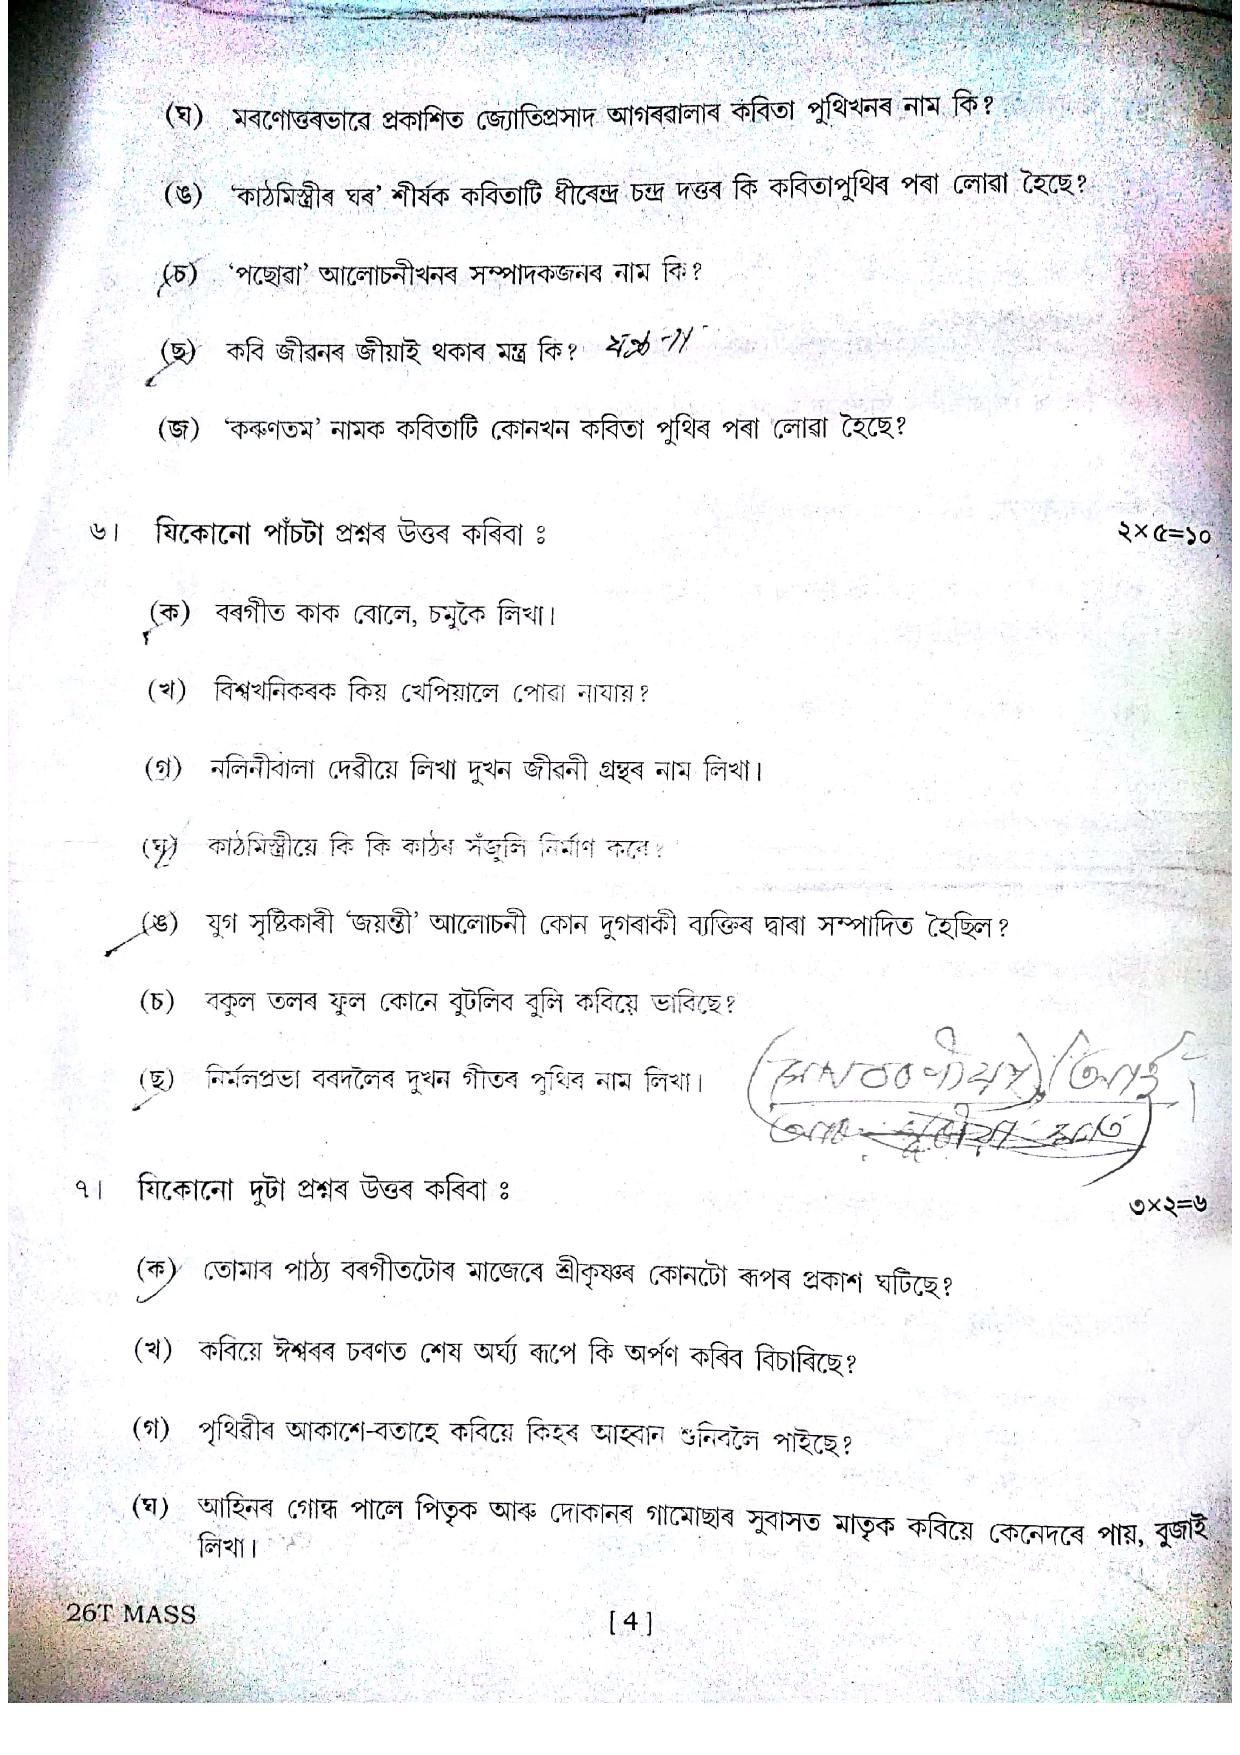 (ঘ) মৰণোত্তৰভাৱে প্ৰকাশিত জ্যোতিপ্ৰসাদ আগৰৱালাৰ কবিতা পুথিখনৰ নাম কি?
(ঙ) ‘কাঠমিস্ত্ৰীৰ ঘৰ’ শীৰ্ষক কবিতাটি ধীৰেন্দ্ৰ চন্দ্ৰ দত্তৰ কি কবিতাপুথিৰ পৰা লোৱা হৈছে?
(চ) ‘পছোৱা’ আলোচনীখনৰ সম্পাদকজনৰ নাম কি?
(ছ) কবি জীৱনৰ জীয়াই থকাৰ মন্ত্ৰ কি?
(জ) ‘কৰুণতম’ নামক কবিতাটি কোনখন কবিতা পুথিৰ পৰা লোৱা হৈছে?
৬। যিকোনো পাঁচটা প্ৰশ্নৰ উত্তৰ কৰিবা ঃ ২×৫=১০
(ক) বৰগীত কাক বোলে, চমুকৈ লিখা।
(খ) বিশ্বখনিকৰক কিয় খেপিয়ালে পোৱা নাযায়?
(গ) নলিনীবালা দেৱীয়ে লিখা দুখন জীৱনী গ্ৰন্থৰ নাম লিখা।
(ঘ) কাঠমিস্ত্ৰীয়ে কি কি কাঠৰ সঁজুলি নিৰ্মাণ কৰে?
(ঙ) যুগ সৃষ্টিকাৰী ‘জয়ন্তী’ আলোচনী কোন দুগৰাকী ব্যক্তিৰ দ্বাৰা সম্পাদিত হৈছিল?
(চ) বকুল তলৰ ফুল কোনে বুটলিব বুলি কবিয়ে ভাবিছে?
(ছ) নিৰ্মলপ্ৰভা বৰদলৈৰ দুখন গীতৰ পুথিৰ নাম লিখা।
৭। যিকোনো দুটা প্ৰশ্নৰ উত্তৰ কৰিবা ঃ ৩×২=৬
(ক) তোমাৰ পাঠ্য বৰগীতটোৰ মাজেৰে শ্ৰীকৃষ্ণৰ কোনটো ৰূপৰ প্ৰকাশ ঘটিছে?
(খ) কবিয়ে ঈশ্বৰৰ চৰণত শেষ অৰ্ঘ্য ৰূপে কি অৰ্পণ কৰিব বিচাৰিছে?
(গ) পৃথিৱীৰ আকাশে-বতাহে কবিয়ে কিহৰ আহ্বান শুনিবলৈ পাইছে?
(ঘ) আহিনৰ গোন্ধ পালে পিতৃক আৰু দোকানৰ গামোছাৰ সুবাসত মাতৃক কবিয়ে কেনেদৰে পায়, বুজাই
লিখা।
26T MASS [ 4 ]